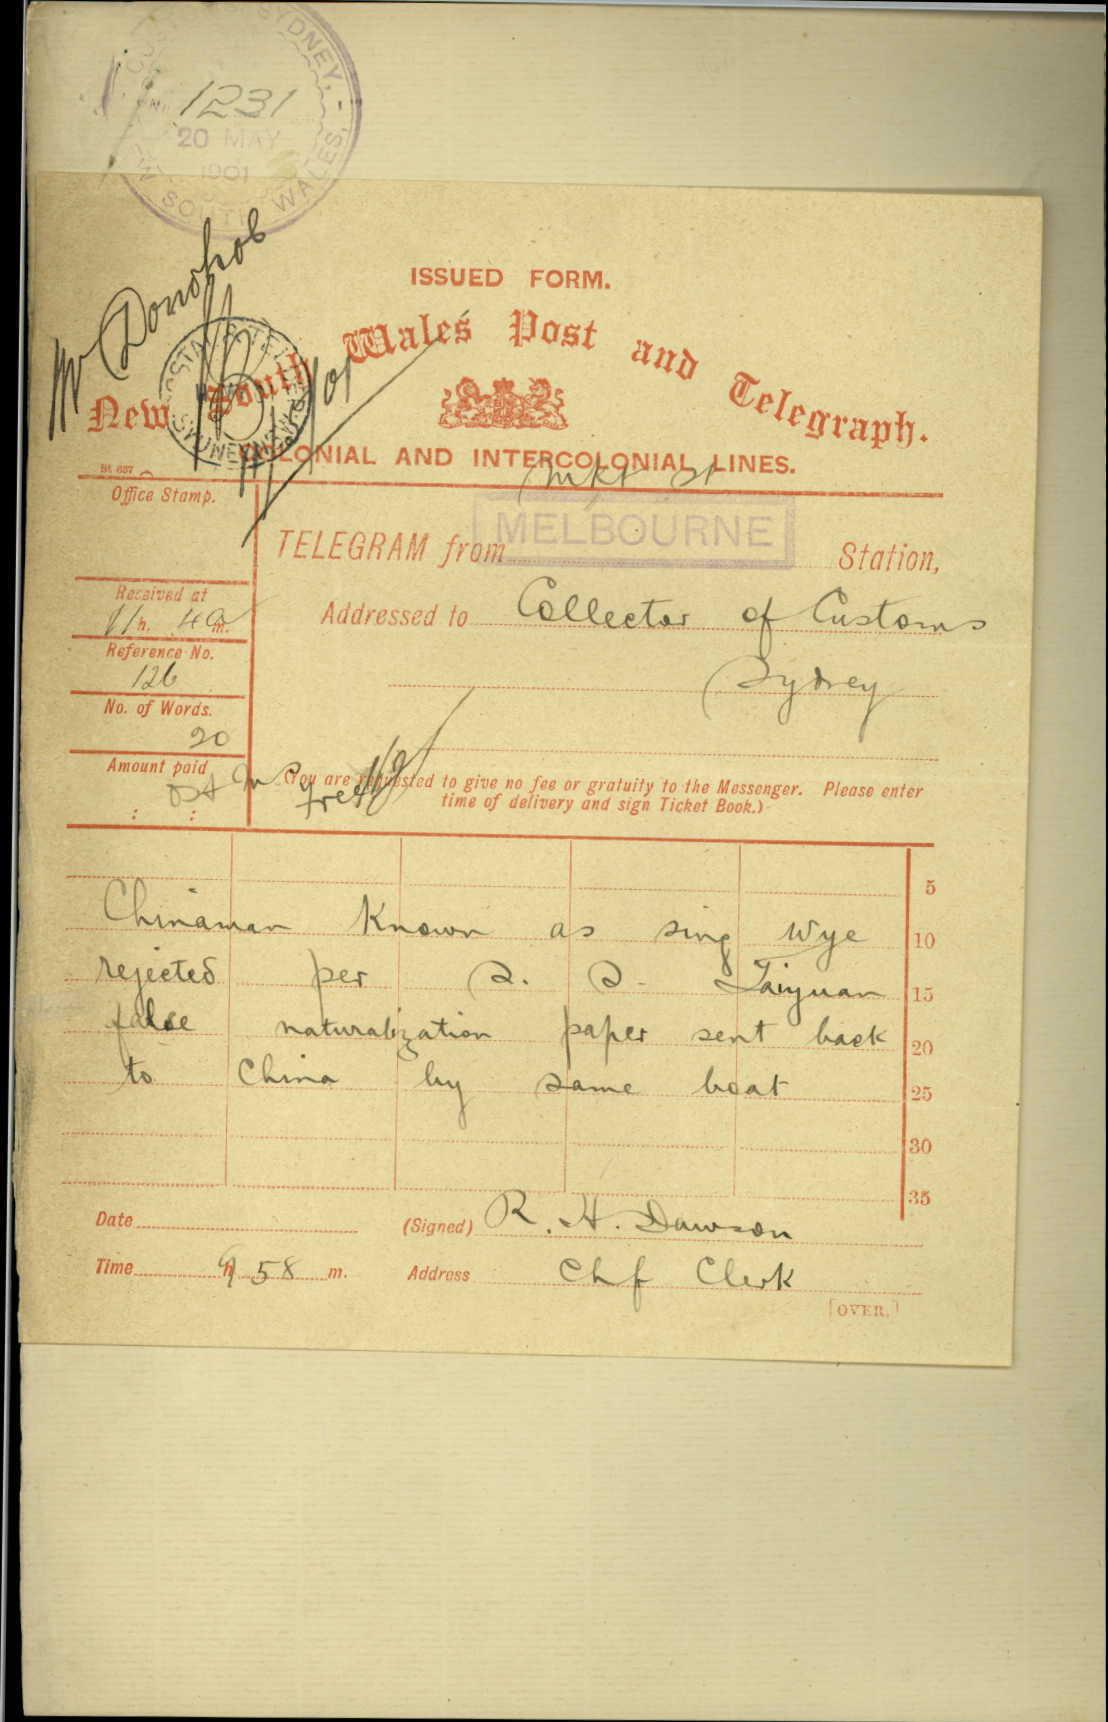 CUSTOMS SYDNEY,
1231
20 MAY
1901
NEW SOUTH WALES.
Mr Donohoe
ISSUED FORM.
New South Wales Post and Telegraph.
COLONIAL AND INTERCOLONIAL LINES.
Bt 637
Mkt St
Office Stamp.
MELBOURNE
TELEGRAM from Station,
Received at
11 h. 4 m.
Addressed to Collector of Customs
Sydney
Reference No.
126
No. of Words.
20
Amount paid
: :
Free
(You are requested to give no fee or gratuity to the Messenger. Please enter
time of delivery and sign Ticket Book.)
5
Chinaman Known as sing Wye 10
rejected per S. S. Taiyuan 15
false naturalization paper sent back 20
to China by same boat 25
30
35
Date (Signed) R. H. Dawson
Time 9 h 58 m. Address Chf Clerk
[OVER.]